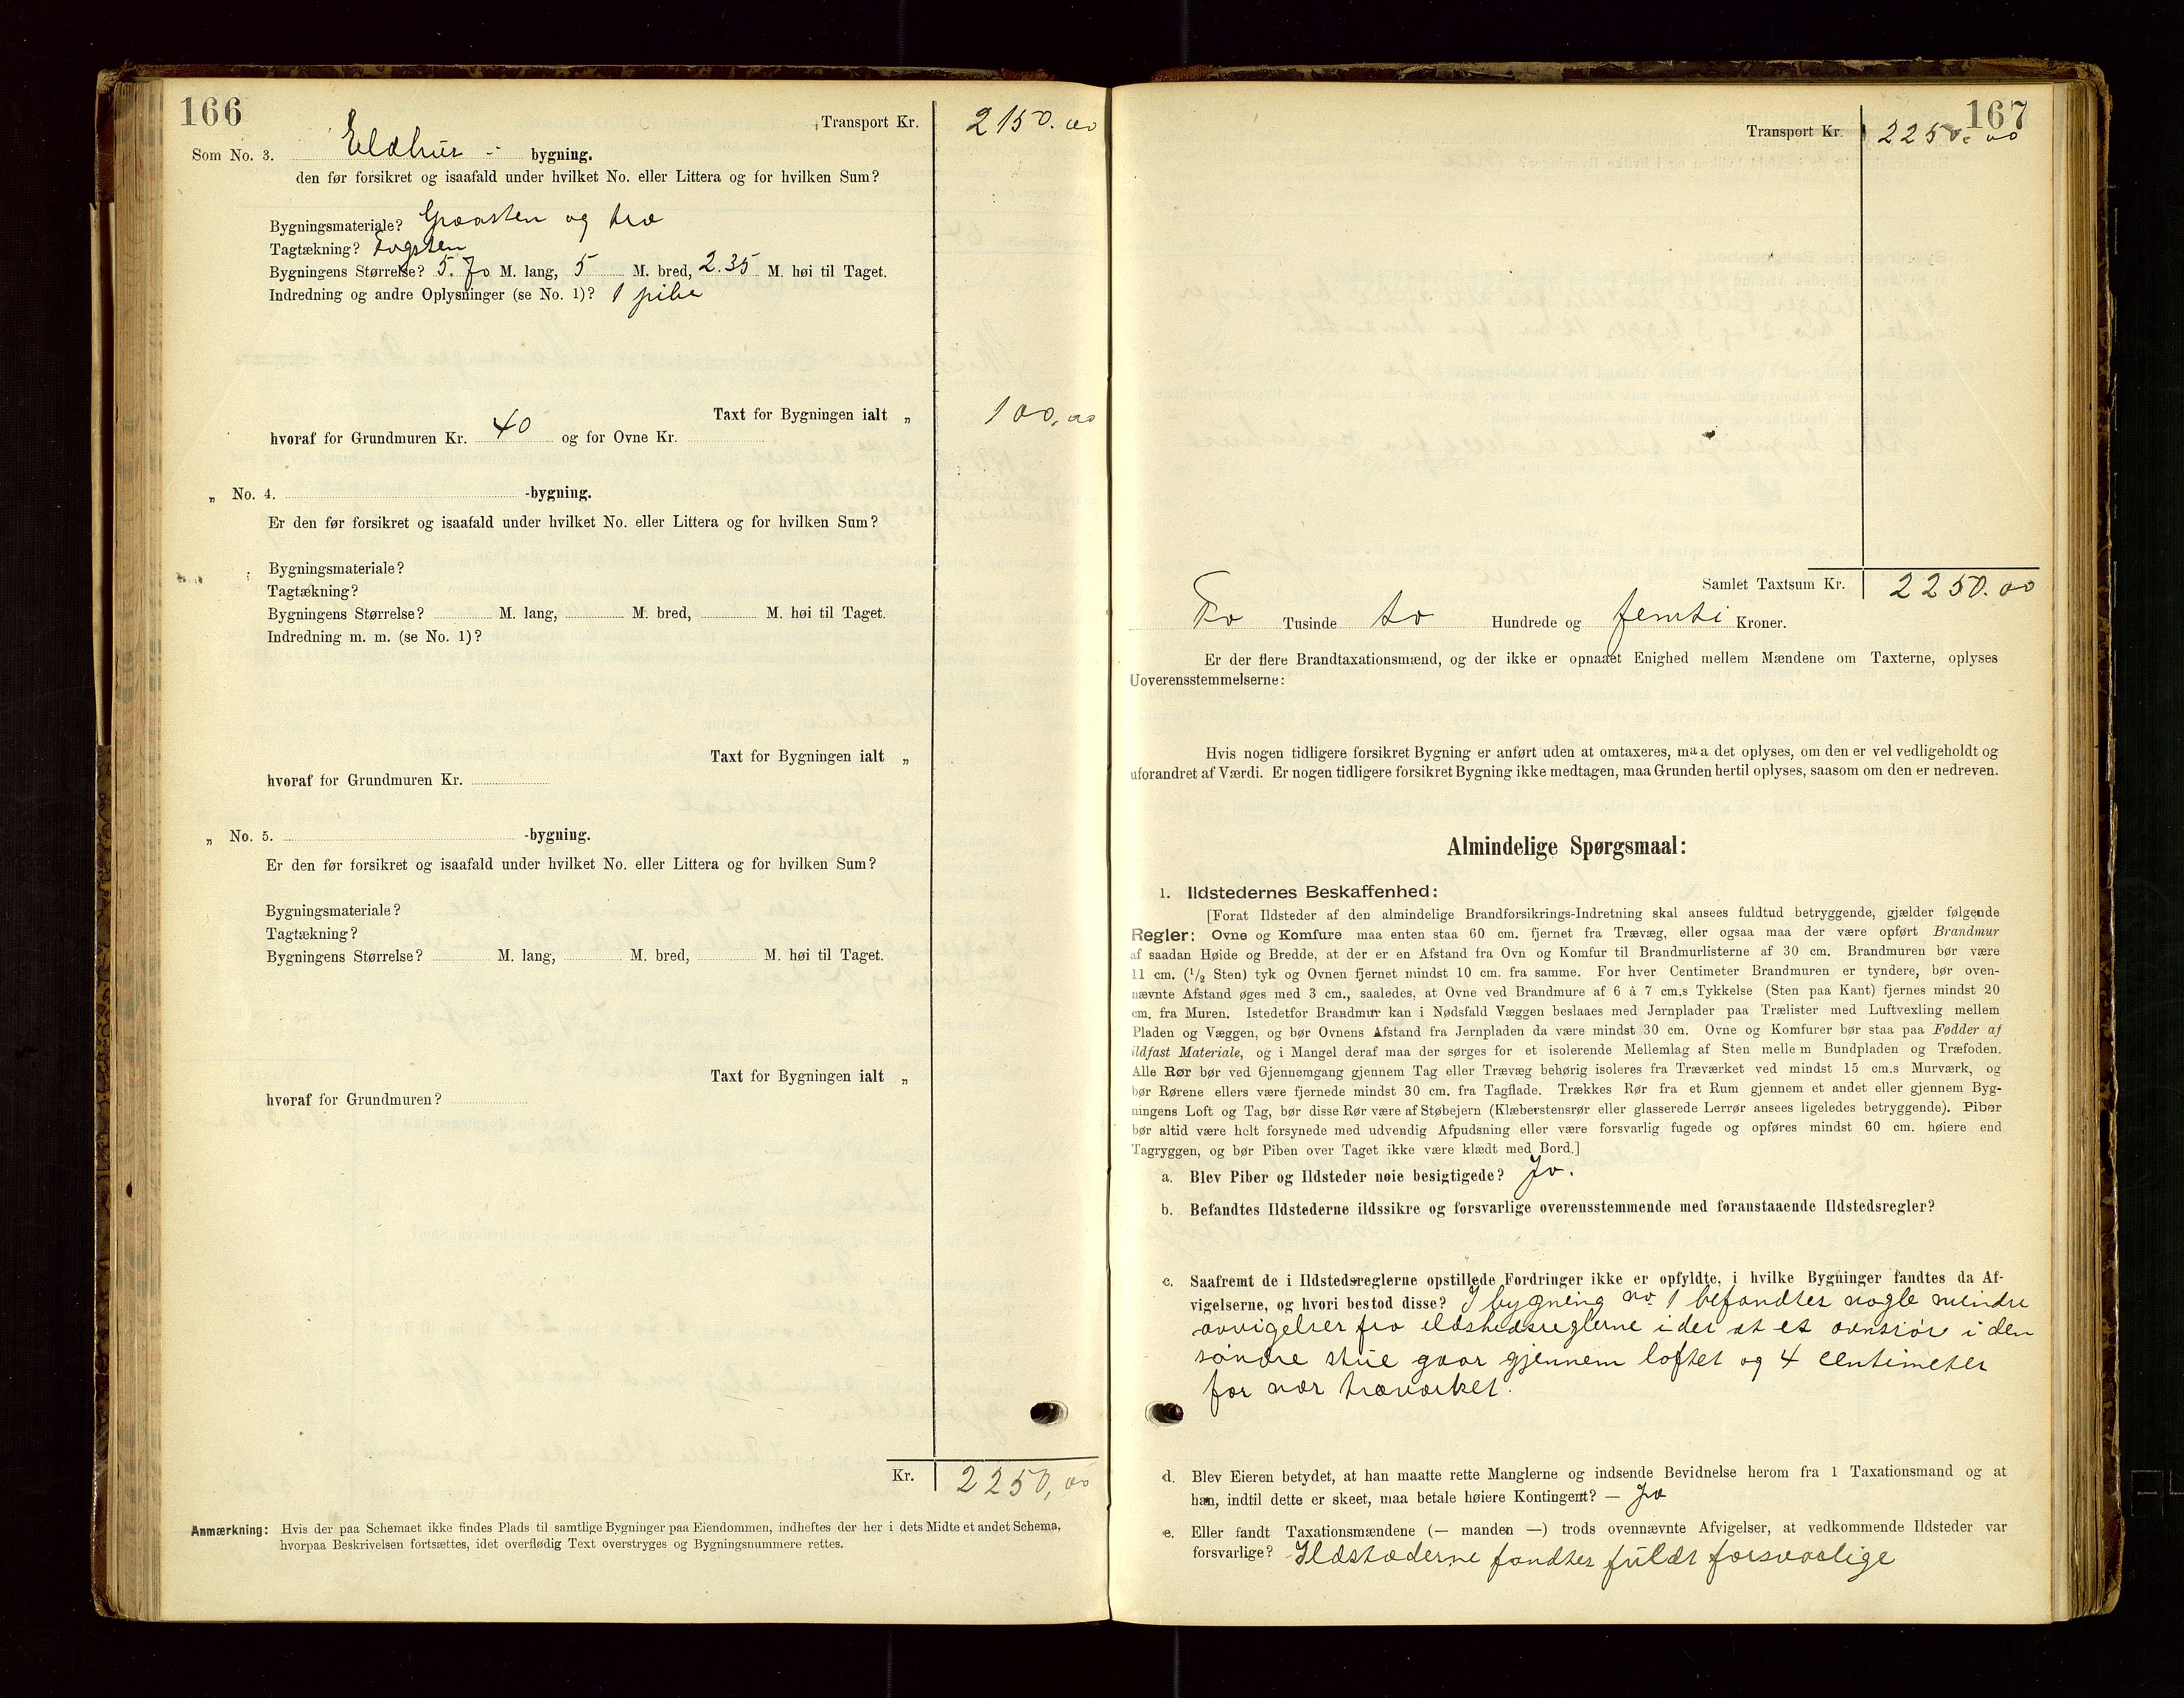 166
Transport Kr. 2150.00
Som No. 3. Eldhus - bygning.
den før forsikret og isaafald under hvilket No. eller Littera og for hvilken Sum?
Bygningsmateriale? Graasten og træ
Tagtækning? Tagsten
Bygningens Størrelse? 5.70 M. lang, 5 M. bred, 2.35 M. høi til Taget.
Indredning og andre Oplysninger (se No. 1)? 1 pibe
Taxt for Bygningen ialt „ 100,00
hvoraf for Grundmuren Kr. 40 og for Ovne Kr.
„ No. 4. -bygning.
Er den før forsikret og isaafald under hvilket No. eller Littera og for hvilken Sum?
Bygningsmateriale?
Tagtækning?
Bygningens Størrelse? M. lang, M. bred, M. høi til Taget.
Indredning m. m. (se No. 1)?
Taxt for Bygningen ialt „
hvoraf for Grundmuren Kr.
„ No. 5. -bygning.
Er den før forsikret og isaafald under hvilket No. eller Littera og for hvilken Sum?
Bygningsmateriale?
Tagtækning?
Bygningens Størrelse? M. lang, M. bred, M. høi til Taget.
Taxt for Bygningen ialt „
hvoraf for Grundmuren?
Kr. 2250,00
Anmærkning: Hvis der paa Schemaet ikke findes Plads til samtlige Bygninger paa Eiendommen, indheftes der her i dets Midte et andet Schema,
hvorpaa Beskrivelsen fortsættes, idet overflødig Text overstryges og Bygningsnummere rettes.
167
Transport Kr. 2250.00
Samlet Taxtsum Kr. 2250.00
To Tusinde to Hundrede og femti Kroner.
Er der flere Brandtaxationsmænd, og der ikke er opnaaet Enighed mellem Mændene om Taxterne, oplyses
Uoverensstemmelserne:
Hvis nogen tidligere forsikret Bygning er anført uden at omtaxeres, maa det oplyses, om den er vel vedligeholdt og
uforandret af Værdi. Er nogen tidligere forsikret Bygning ikke medtagen, maa Grunden hertil oplyses, saasom om den er nedreven.
Almindelige Spørgsmaal:
1. Ildstedernes Beskaffenhed:
[Forat Ildsteder af den almindelige Brandforsikrings-Indretning skal ansees fuldtud betryggende, gjælder følgende
Regler: Ovne og Komfure maa enten staa 60 cm. fjernet fra Trævæg, eller ogsaa maa der være opført Brandmur
af saadan Høide og Bredde, at der er en Afstand fra Ovn og Komfur til Brandmurlisterne af 30 cm. Brandmuren bør være
11 cm. (1/2 Sten) tyk og Ovnen fjernet mindst 10 cm. fra samme. For hver Centimeter Brandmuren er tyndere, bør oven-
nævnte Afstand øges med 3 cm., saaledes, at Ovne ved Brandmure af 6 à 7 cm.s Tykkelse (Sten paa Kant) fjernes mindst 20
cm. fra Muren. Istedetfor Brandmur kan i Nødsfald Væggen beslaaes med Jernplader paa Trælister med Luftvexling mellem
Pladen og Væggen, og bør Ovnens Afstand fra Jernpladen da være mindst 30 cm. Ovne og Komfurer bør staa paa Fødder af
ildfast Materiale, og i Mangel deraf maa der sørges for et isolerende Mellemlag af Sten mellem Bundpladen og Træfoden.
Alle Rør bør ved Gjennemgang gjennem Tag eller Trævæg behørig isoleres fra Træværket ved mindst 15 cm.s Murværk, og
bør Rørene ellers være fjernede mindst 30 cm. fra Tagflade. Trækkes Rør fra et Rum gjennem et andet eller gjennem Byg-
ningens Loft og Tag, bør disse Rør være af Støbejern (Klæberstensrør eller glasserede Lerrør ansees ligeledes betryggende). Piber
bør altid være helt forsynede med udvendig Afpudsning eller være forsvarlig fugede og opføres mindst 60 cm. høiere end
Tagryggen, og bør Piben over Taget ikke være klædt med Bord.]
a. Blev Piber og Ildsteder nøie besigtigede? Ja.
b. Befandtes Ildstederne ildssikre og forsvarlige overensstemmende med foranstaaende Ildstedsregler?
c. Saafremt de i Ildstedsreglerne opstillede Fordringer ikke er opfyldte, i hvilke Bygninger fandtes da Af-
vigelserne, og hvori bestod disse? I bygning no 1 befandtes nogle mindre
avvigelser fra ildstedsreglerne i det at et ovnsrör i den
söndre stue gaar gjennem loftet og 4 centimeter
for nær træværket.
d. Blev Eieren betydet, at han maatte rette Manglerne og indsende Bevidnelse herom fra 1 Taxationsmand og at
han, indtil dette er skeet, maa betale høiere Kontingent? — Ja
e. Eller fandt Taxationsmændene (— manden —) trods ovennævnte Afvigelser, at vedkommende Ildsteder var
forsvarlige? Ildstæderne fandtes fuldt forsvarlige